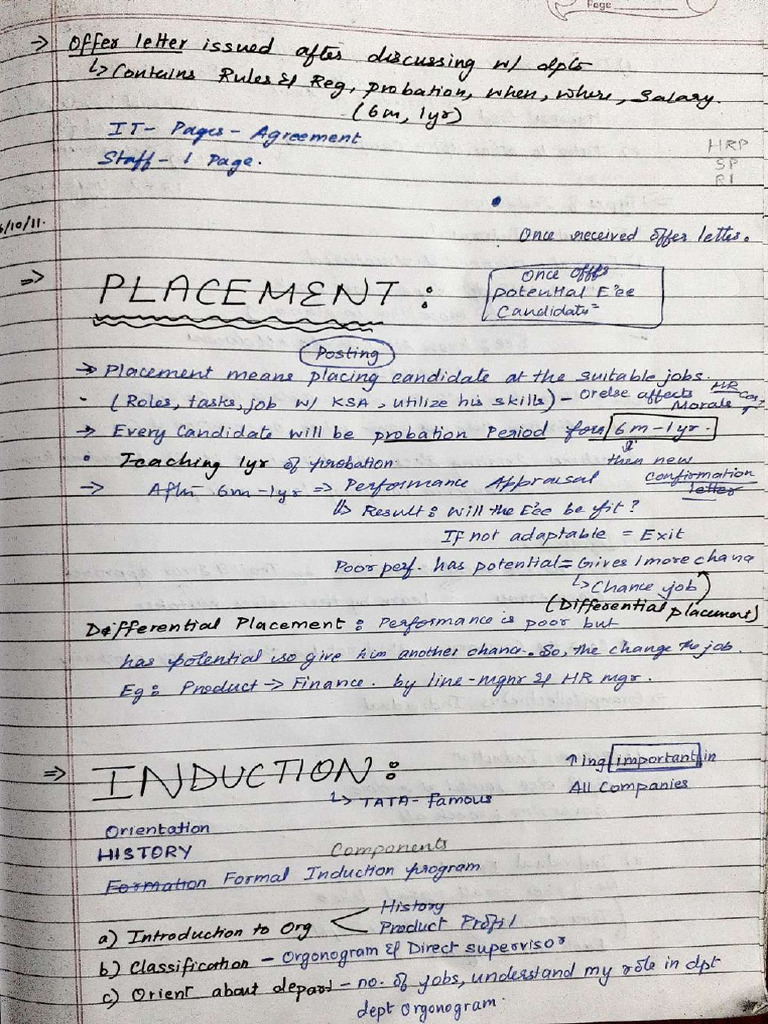 Page
=> Offer letter issued after discussing w/ dpts
↳ Contains Rules & Reg, probation, when, where, Salary.
(6m, 1yr)
IT- Pages - Agreement
Staff- 1 Page.
HRP
SP
RI
/10/11.
Once received offer letter.
=> PLACEMENT :
Once offer
potential E'ee
Candidate =
Posting
→ Placement means placing candidate at the suitable jobs.
- (Roles, tasks, job w/ KSA, utilize his skills) - orelse affects HR
Morale
→ Every Candidate will be probation Period for 6m-1yr.
• Teaching 1yr of probation then new
confirmation
letter
→ After 6m-1yr => Performance Appraisal
Result: Will the E'ee be fit?
If not adaptable = Exit
Poor perf. has potential = Gives 1 more chanc
↳ Chance job
(Differential placement)
Differential Placement : Performance is poor but
has potential so give him another chanc. So, the change the job.
Eg: Product -> Finance. by line-mgnr & HR mgr.
=> INDUCTION :
↑ing important in
All Companies
↳ TATA- famous
Orientation
HISTORY
Components
Formation Formal Induction program
a) Introduction to Org < History
Product Profil
b) Classification - Orgonogram & Direct supervisor
c) Orient about depart - no. of jobs, understand my role in dpt
dept orgonogram.